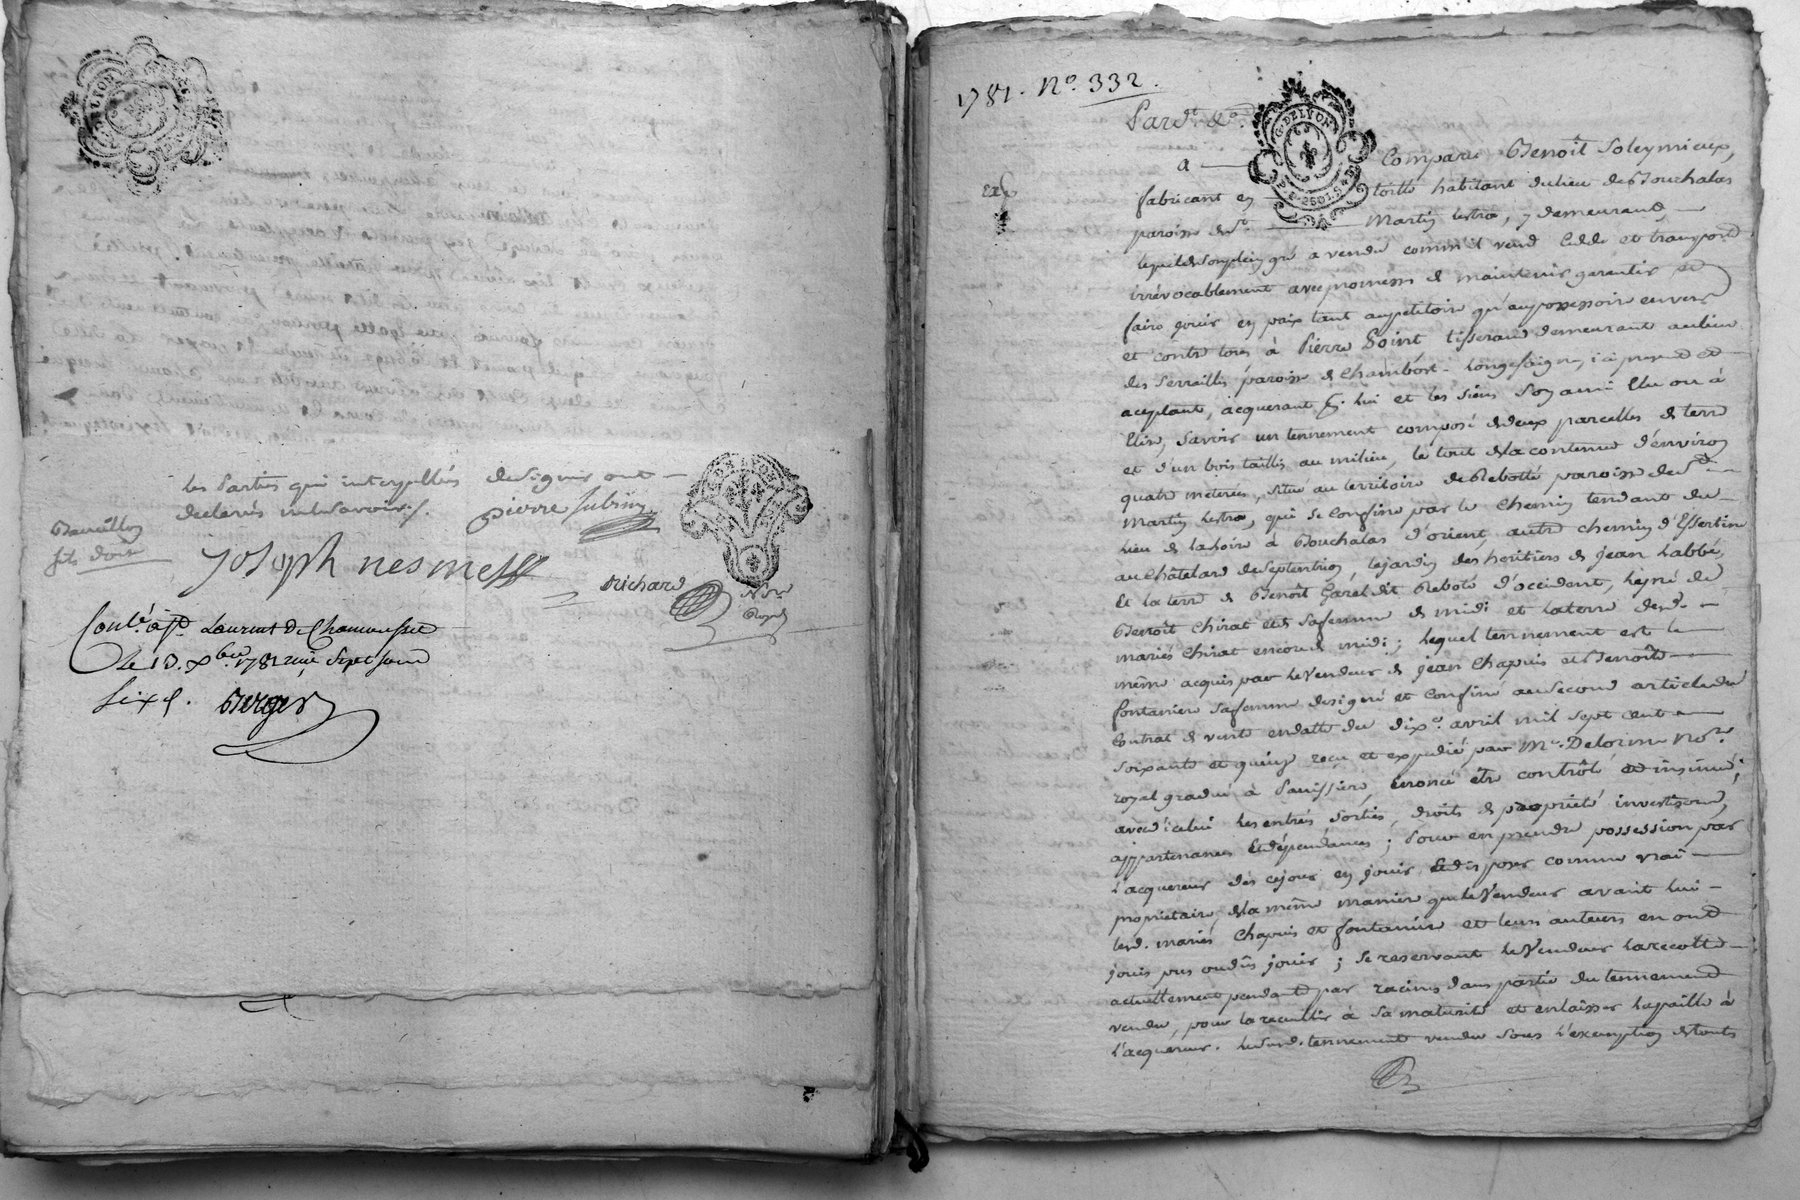 G. DE LYON
les Parties qui interpellés de signer ont
declarés ne le savoir ./.
pierre Subrin
joseph nesme
Richard
No.re
Royal
Conl.é à S.t Laurent De Chamousset
le 13. xbre 1781 reçu sept sous
six d. Berger
1781. N.o 332.
Pard.t &.a
G. DE LYON
a
Compare Benoît Soleymieux,
fabricant en toille habitant du lieu de Bouchalas
paroisse de S.t Martin lestra, y demeurant,
lequel de son plein gré a vendu comm'il vend cedde et transporte
irrévocablement avec promesse de maintenir garentir et
faire jouir en paix tant au petitoire qu'au possessoire envers
et contre tous à Pierre Point tisserand demeurant au lieu
des Serrailles paroisse de Chambost-Longessaigne, ici present et
aceptant, acquerant p.r lui et les siens son ami Elu ou à
Elire, savoir un tennement composé de deux parcelles de terre
et d'un bois taillis au milieu, le tout de la contenue d'environ
quatre meterés, situé au territoire de Rebotté paroisse de S.t
Martin lestra, qui se confine par le chemin tendant du
lieu de la Loire à Bouchalas d'orient, autre chemin d'Essertine
au Châtelard de septentrion, le jardin des heritiers de jean Labbé,
Et la terre de Benoît Garel dit Reboté d'occident, le pré de
Benoît Chirat et de sa femme de midi et la terre desd.
mariés Chirat encore de midi ; lequel tennement est le
même acquis par le Vendeur de jean Chapuis et Benoîte
fontaniere sa femme designé et confiné au second article du
contrat de vente en datte du dix.e avril mil sept cent
soixante et quinze reçu et expedié par M.e Delorme No.re
royal gradué à Panissiere, énoncé être contrôlé et insinué ;
avec icelui les entrés, sorties, droits de propriété investison,
appartenances Et dépendances ; Pour en prendre possession par
l'acquereur dès ce jour en jouir, et disposer comme vrai
propriétaire de la même maniere que le Vendeur avant lui
lesd. mariés Chapuis et fontaniere et leurs auteurs en ont
jouis pus ou dûs jouir ; se reservant le Vendeur la recolte
actuellement pendante par racines dans partie du tennement
vendu, pour la recuillir à sa maturité et en laisser la paille à
l'acquereur. Le sud. tennement vendu sous l'exemption de touts